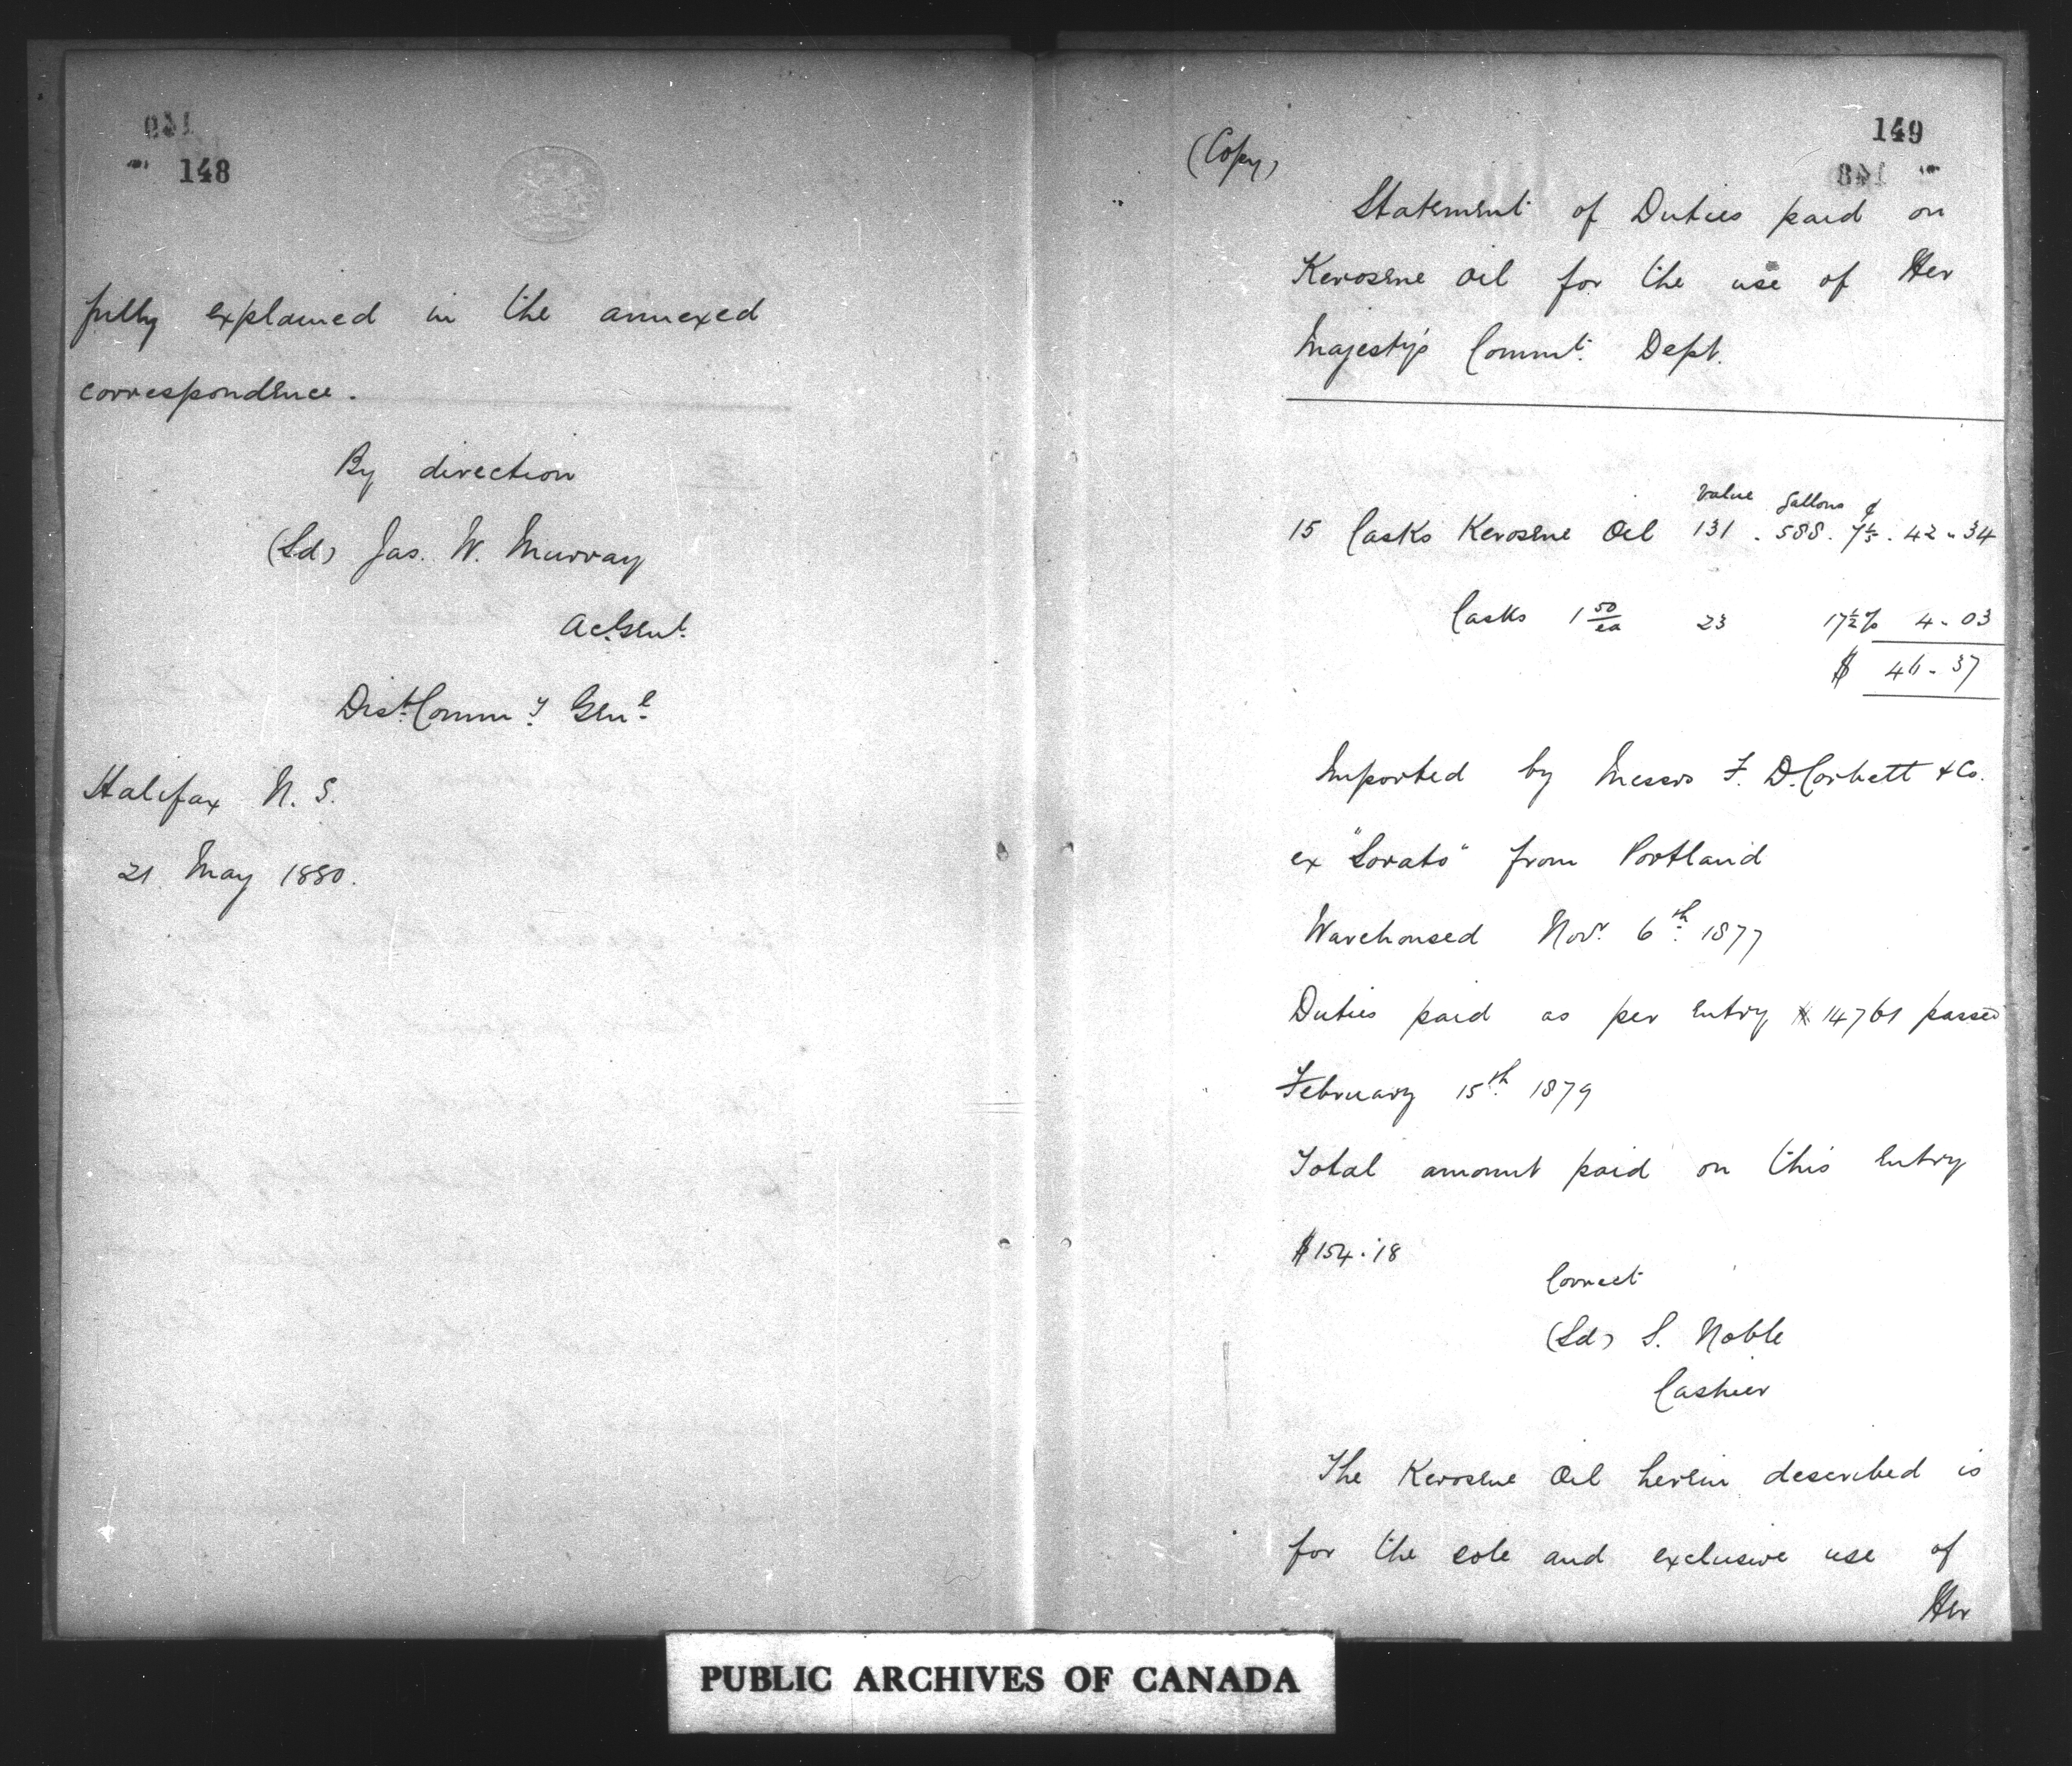 148
fully explained in the annexed
correspondence.
By direction
(Sd) Jas. W. Murray
Dist. Commy Genl
Halifax N. S.
21 May 1880.
149
(Copy)
Statement of Duties paid on
Kerosene Oil for the use of Her
Majesty's Commt. Dept.
Value Gallons ¢
15 Casks Kerosene Oil 131 . 588 . 7 1/5 . 42 - 34
Casks 1 50/ea 23 17½% 4 - 03
$ 46 - 37
Imported by Messrs F. D. Corbett & Co.
ex from Portland
Warehoused Novr. 6th. 1877
Duties paid as per entry 14761 passed
February 15th. 1879
Total amount paid on this entry
$154.18
Correct
(Sd) S. Noble
Cashier
The Kerosene Oil herein described is
for the sole and exclusive use of
Her
PUBLIC ARCHIVES OF CANADA